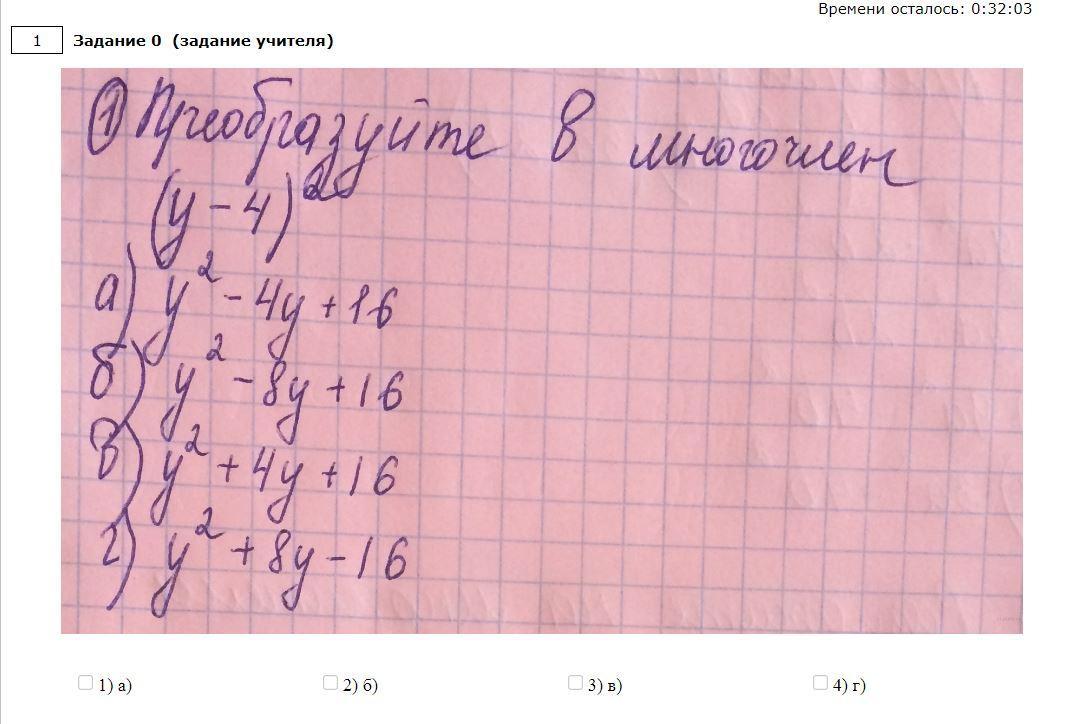 Времени осталось: 0:32:03
1 Задание 0 (задание учителя)
① Преобразуйте в многочлен
(y - 4)²
а) y² - 4y + 16
б) y² - 8y + 16
в) y² + 4y + 16
г) y² + 8y - 16
1) а) 2) б) 3) в) 4) г)